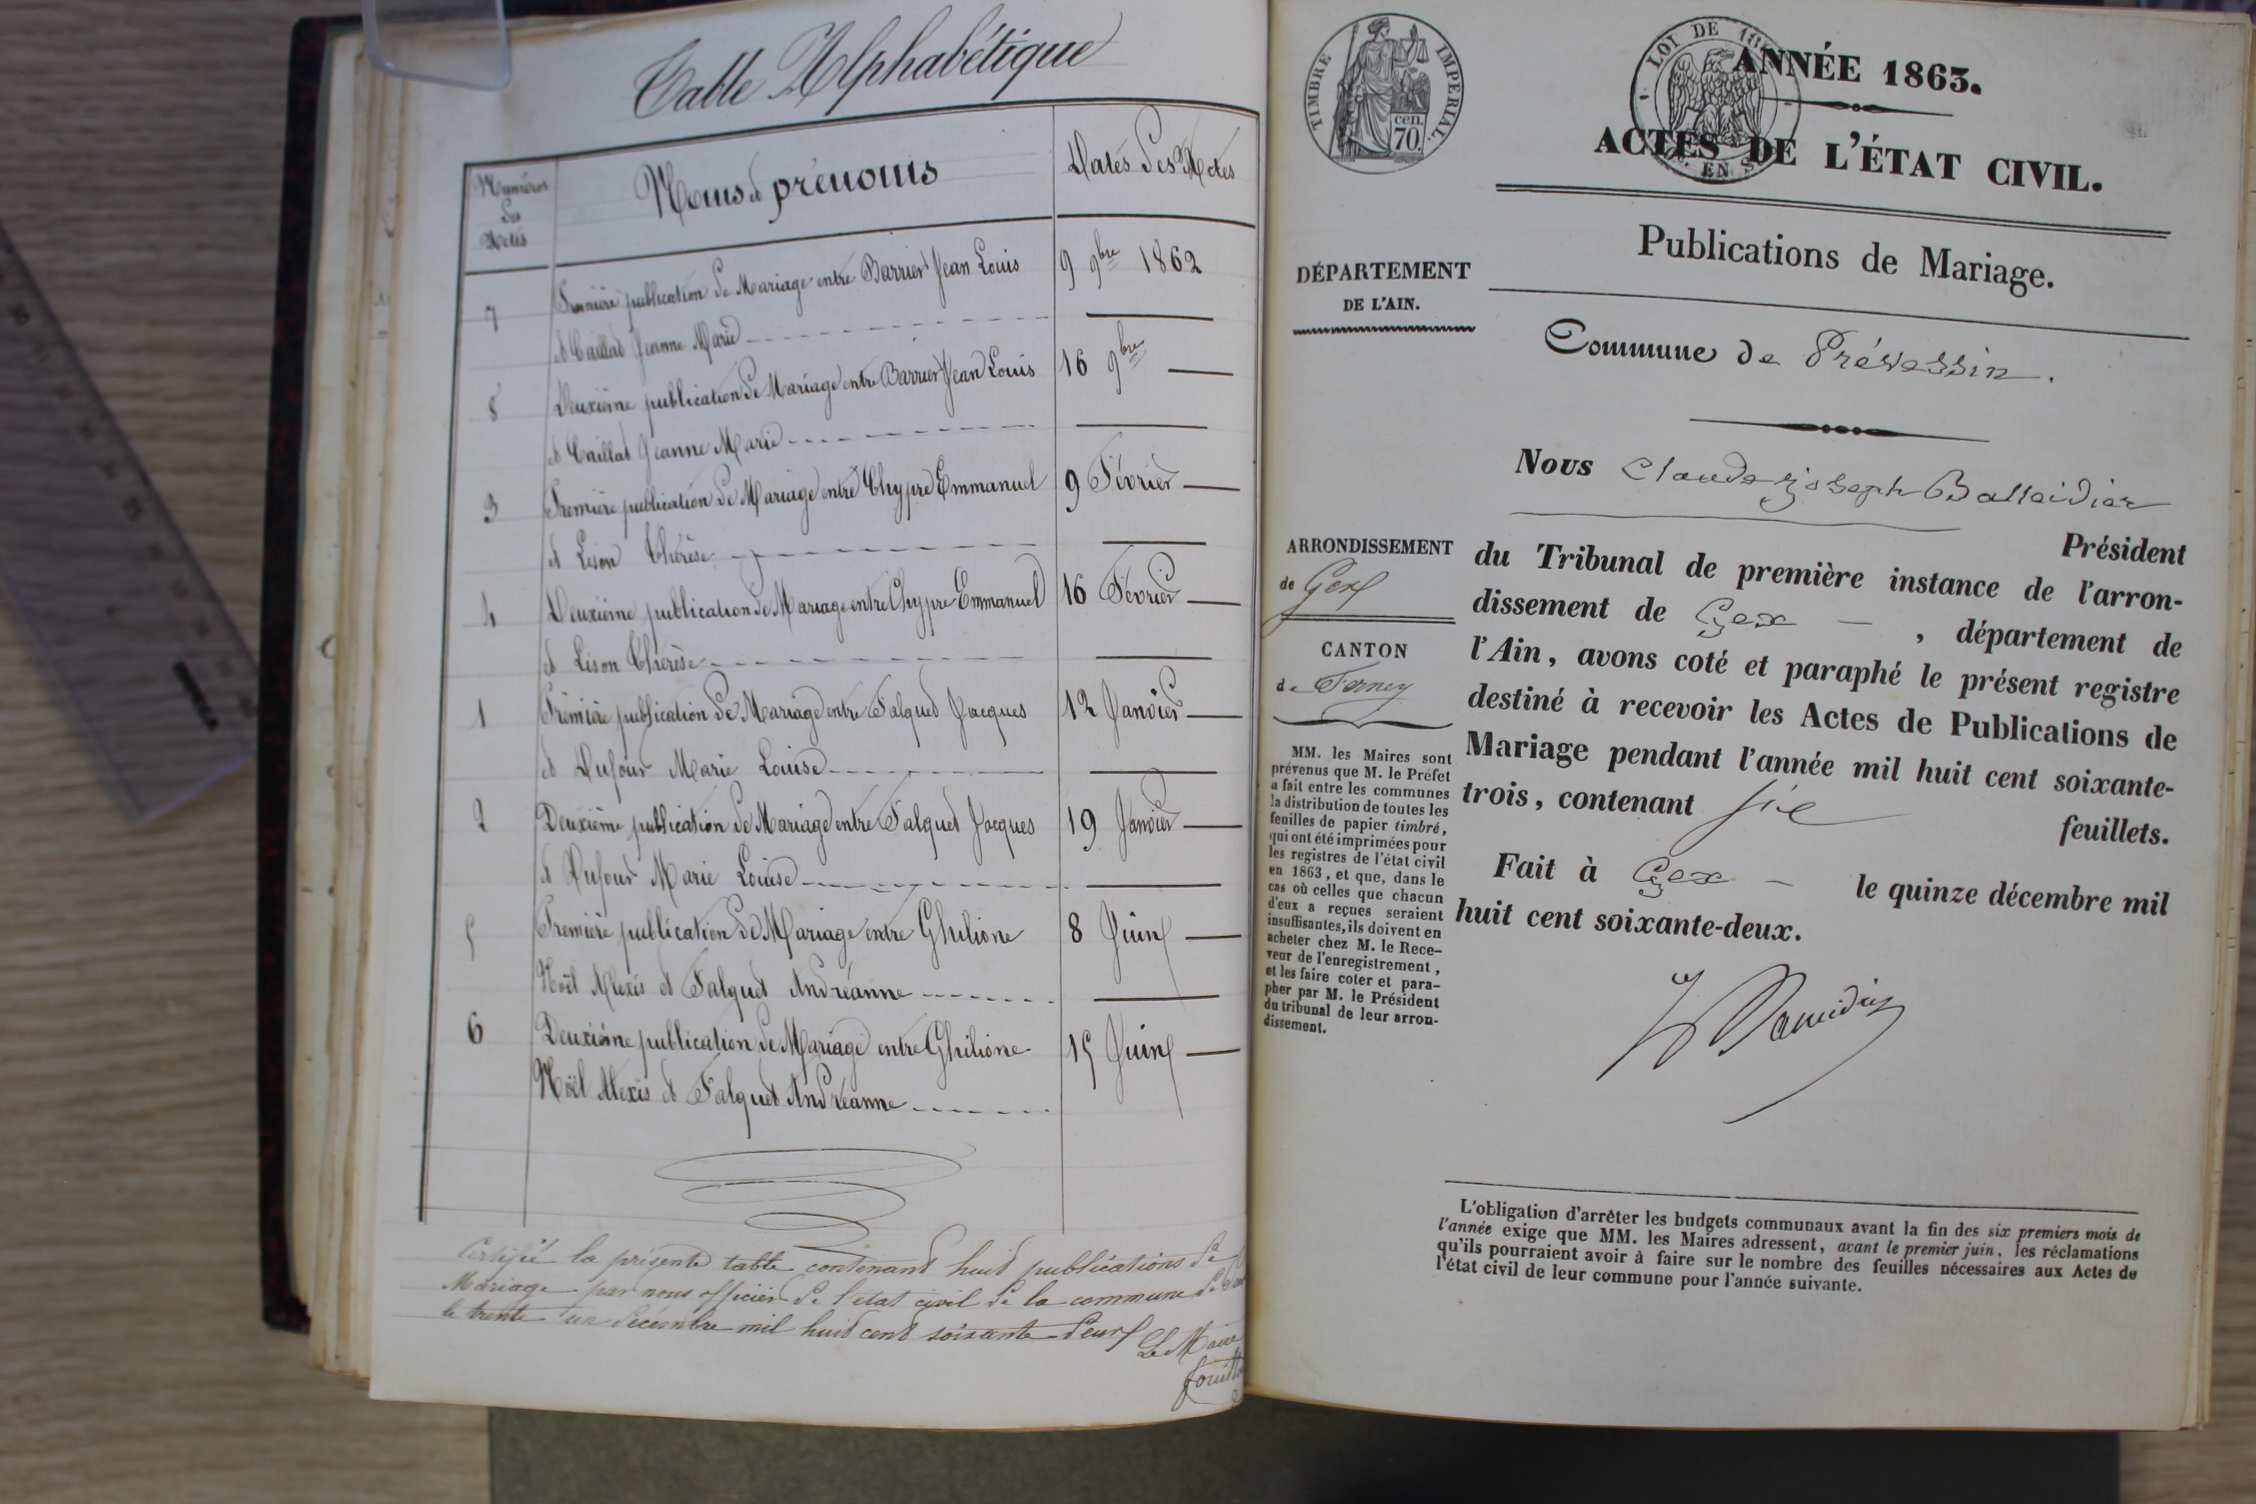 Table Alphabétique
Numéros
des
Actes
Noms et prénoms
Dates des Actes
7
Première publication de Mariage entre Barrier Jean Louis
et Caillat Jeanne Marie
9 9bre 1862
8
Deuxième publication de Mariage entre Barrier Jean Louis
et Caillat Jeanne Marie
16 9bre
3
Première publication de Mariage entre Chypre Emmanuel
et Lison Thérèse
9 Février
4
Deuxième publication de Mariage entre Chypre Emmanuel
et Lison Thérèse
16 Février
1
Première publication de Mariage entre Falquet Jacques
et Dufour Marie Louise
12 Janvier
2
Deuxième publication de Mariage entre Falquet Jacques
et Dufour Marie Louise
19 Janvier
5
Première publication de Mariage entre Ghilione
Noël Alexis et Falquet Andréanne
8 Juin
6
Deuxième publication de Mariage entre Ghilione
Noël Alexis et Falquet Andréanne
15 Juin
Certifié la présente table contenant huit publications de
Mariage par nous officier de l'état civil de la commune de
le trente un décembre mil huit cent soixante deux
Le Maire
TIMBRE IMPERIAL
cen.
70.
LOI DE
EN S
ANNÉE 1863.
ACTES DE L'ÉTAT CIVIL.
Publications de Mariage.
DÉPARTEMENT
DE L'AIN.
Commune de Prévessin.
ARRONDISSEMENT
de Gex
CANTON
de Ferney
MM. les Maires sont
prévenus que M. le Préfet
a fait entre les communes
la distribution de toutes les
feuilles de papier timbré,
qui ont été imprimées pour
les registres de l'état civil
en 1863, et que, dans le
cas où celles que chacun
d'eux a reçues seraient
insuffisantes, ils doivent en
acheter chez M. le Rece-
veur de l'enregistrement,
et les faire coter et para-
pher par M. le Président
du tribunal de leur arron-
dissement.
Nous Claude Joseph Balleidier
Président
du Tribunal de première instance de l'arron-
dissement de Gex — , département de
l'Ain, avons coté et paraphé le présent registre
destiné à recevoir les Actes de Publications de
Mariage pendant l'année mil huit cent soixante-
trois, contenant six feuillets.
Fait à Gex — le quinze décembre mil
huit cent soixante-deux.
L'obligation d'arrêter les budgets communaux avant la fin des six premiers mois de
l'année exige que MM. les Maires adressent, avant le premier juin, les réclamations
qu'ils pourraient avoir à faire sur le nombre des feuilles nécessaires aux Actes de
l'état civil de leur commune pour l'année suivante.